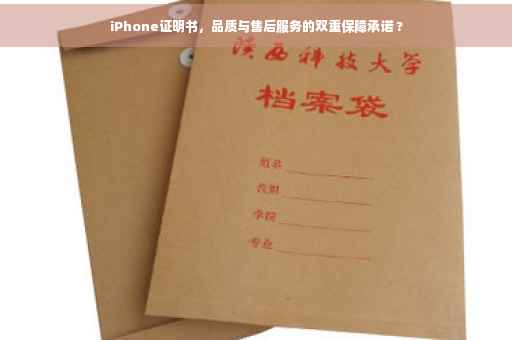 iPhone证明书，品质与售后服务的双重保障承诺？
陕西科技大学
档案袋
姓名
学院
专业